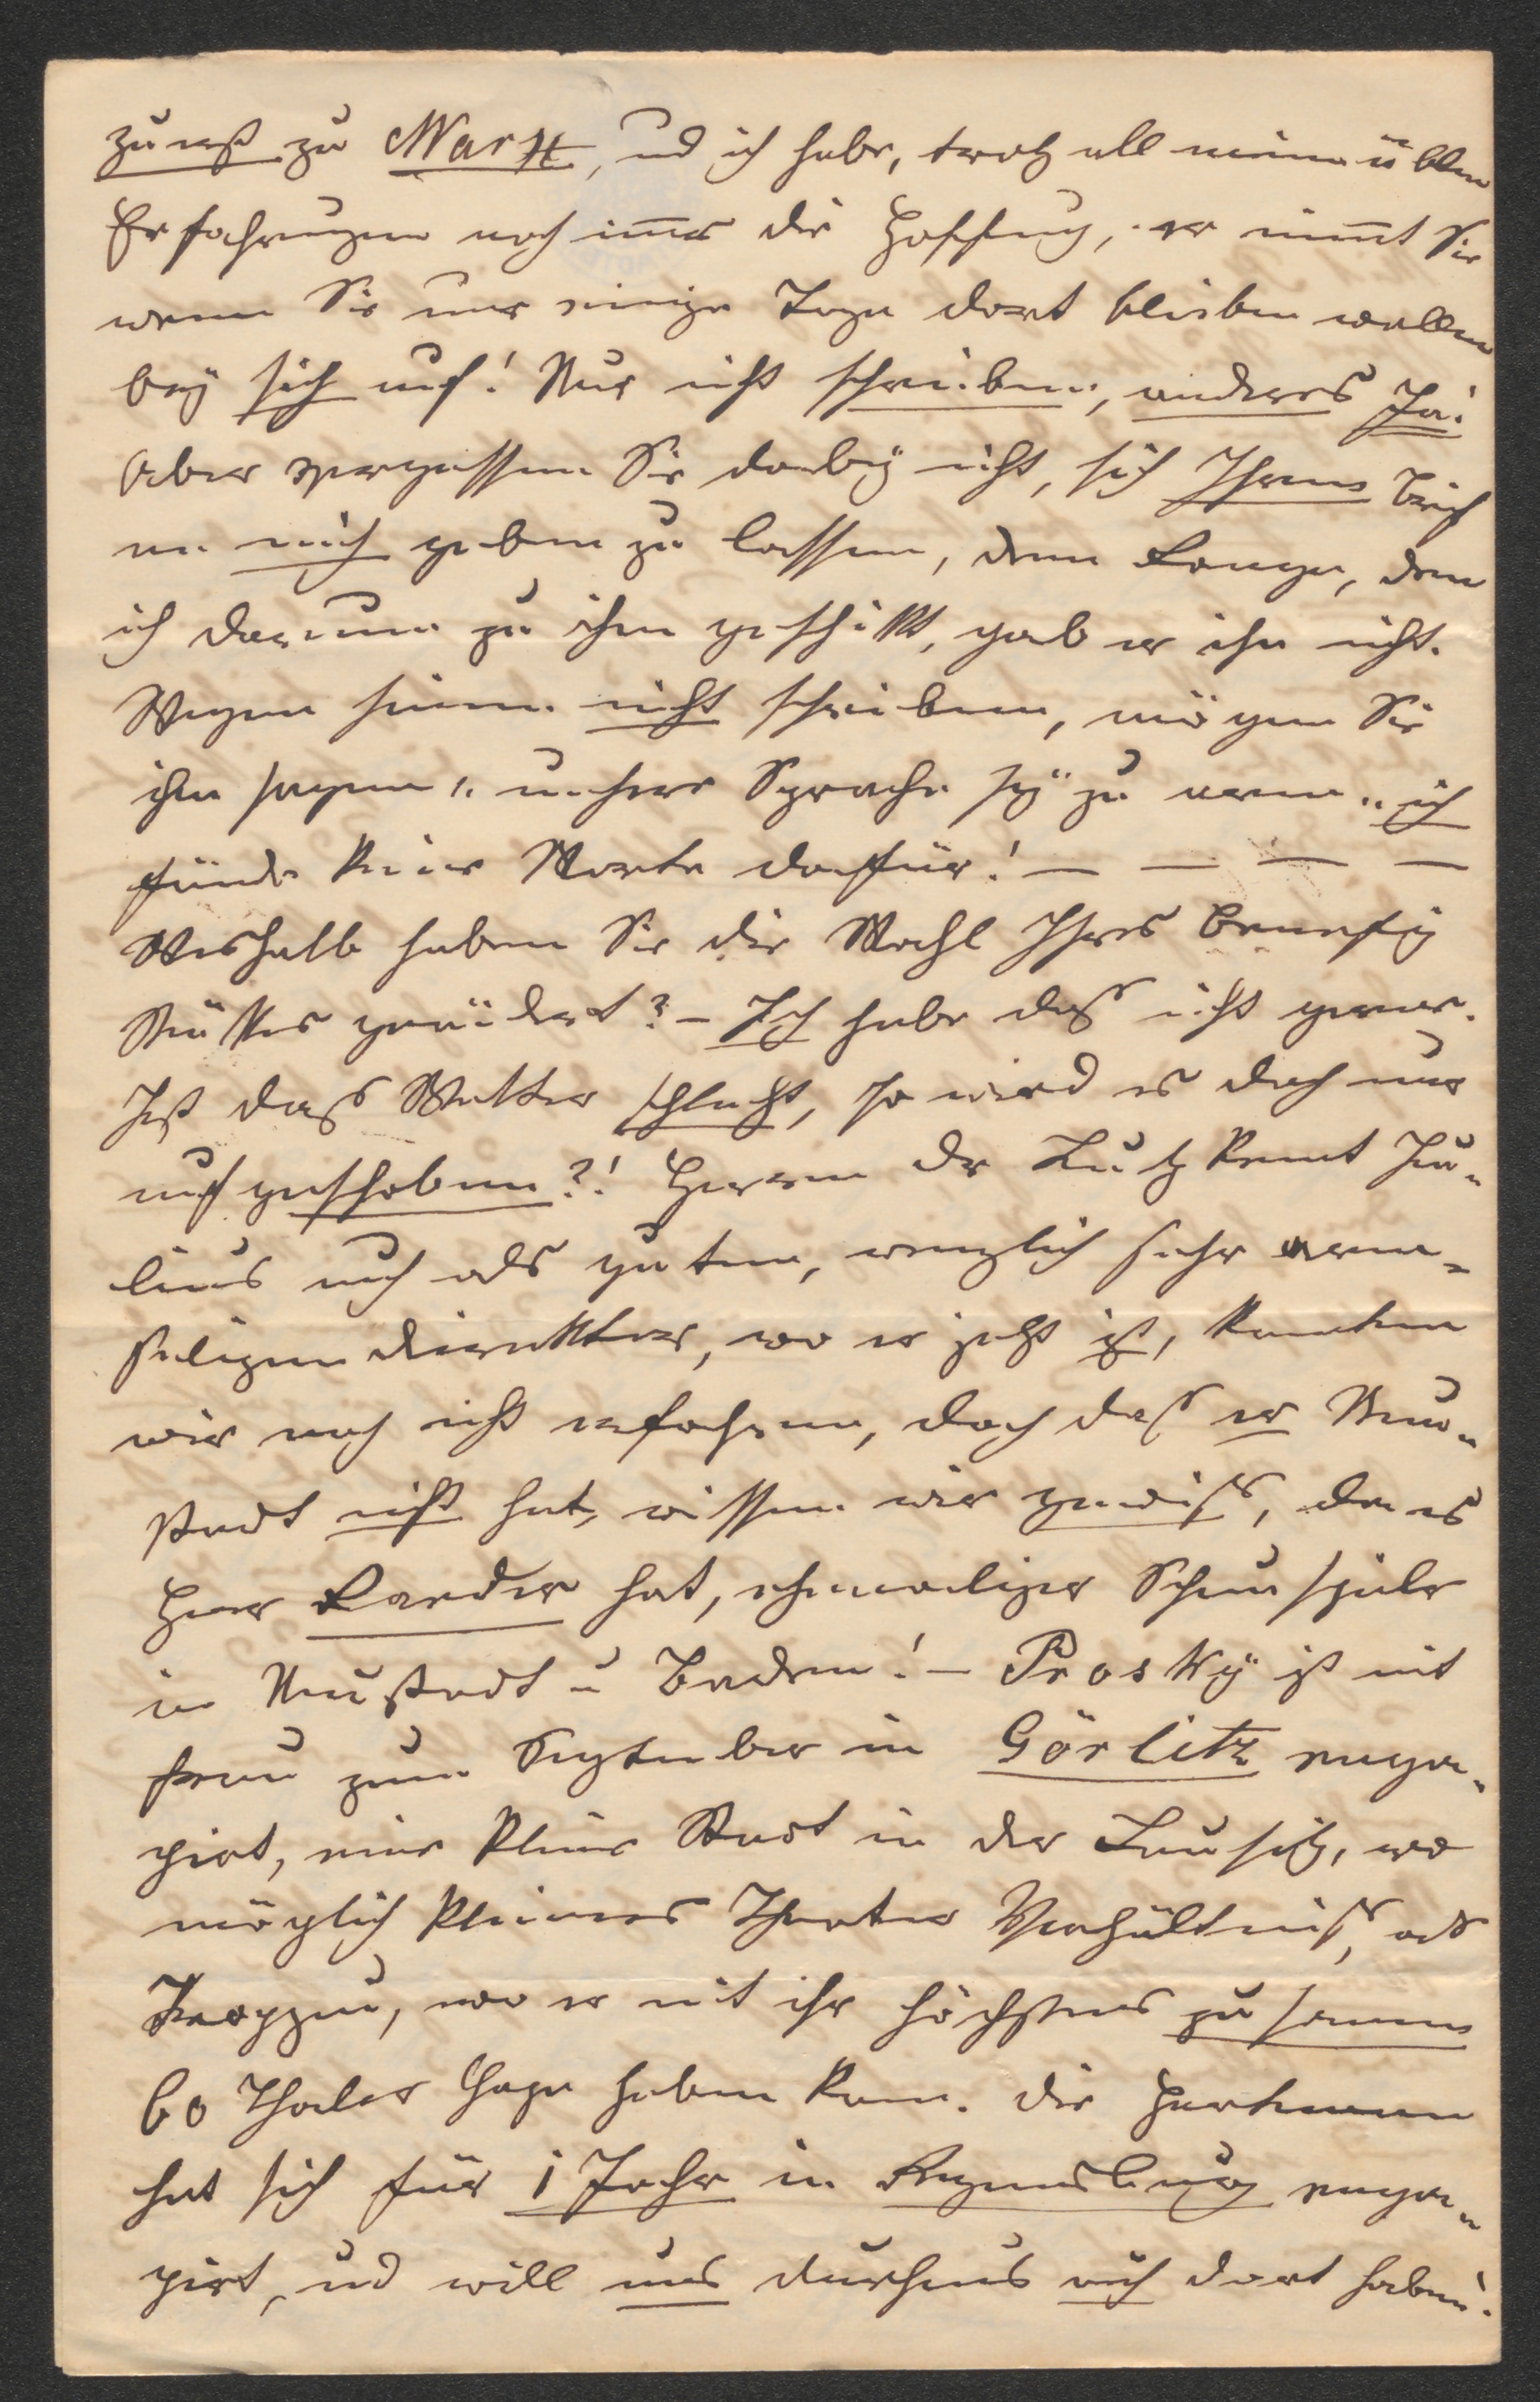 zuerst zu Marx, und ich habe, trotz all meiner üblen
Erfahrungen noch im̄er die Hoffnung, er nim̄t Sie
wenn Sie nur einige Tage dort bleiben wollen
bey sich auf! Nur nicht schreiben, anderes Ja!
Aber vergessen Sie dabey nicht, sich Ihren Brief
an mich geben zu lassen, denn Lange, den
ich darum zu ihm geschikt, gab er ihn nicht.
Wegen seinem nicht schreiben, mögen Sie
ihm sagen „unsere Sprache sey zu arm" ich
fände keine Worte dafür! — — — —
Weshalb haben Sie die Wahl Ihres Benefiz
Stükes geändert? – Ich habe daß nicht gerne.
Ist daß Wetter schlecht, so wird es doch nur
aufgeschoben?! Herrn Dr Lutz kennt Ju-
lius auch als guten, wenglich sehr arm-
seligen Direktor, wo er jetzt ist, konnten
wir noch nicht erfahren, doch daß er Neu-
stadt nicht hat, wissen wir gewiß, da es
Herr Raeder hat, ehmaliger Schauspieler
in Neustadt u Baden! – Prosky ist mit
Frau zum September in Görlitz enga-
girt, eine kleine Stadt in der Lausitz, wo
möglich kleineres Theater Verhältniß, als
Troppau, wo er mit ihr höchstens zusamen
60 Thaler Gage haben kann. Die Hartmann
hat sich für 1 Jahr in Regensburg enga-
girt, und will uns durchaus auch dort haben.